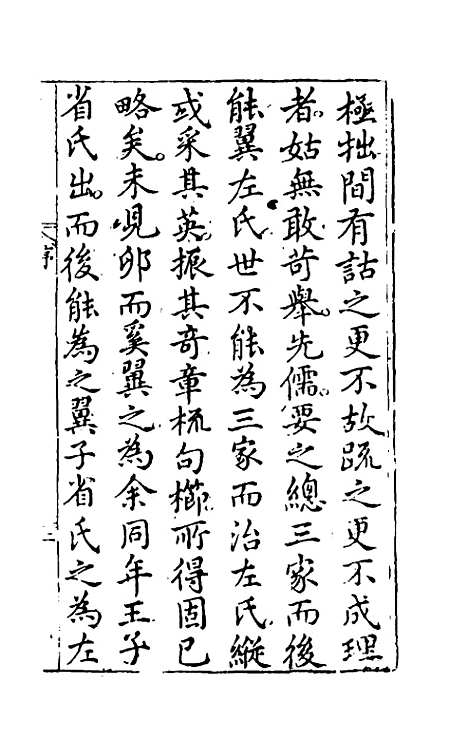 極拙間有詁之更不故䟽之更不成理
者姑無敢苛舉先儒要之總三家而後
能翼左氏世不能為三家而治左氏縱
或采其英振其奇章梳句櫛所得固已
略矣未覩卵而奚翼之為余同年王子
省氏出而後能為之翼子省氏之為左
序